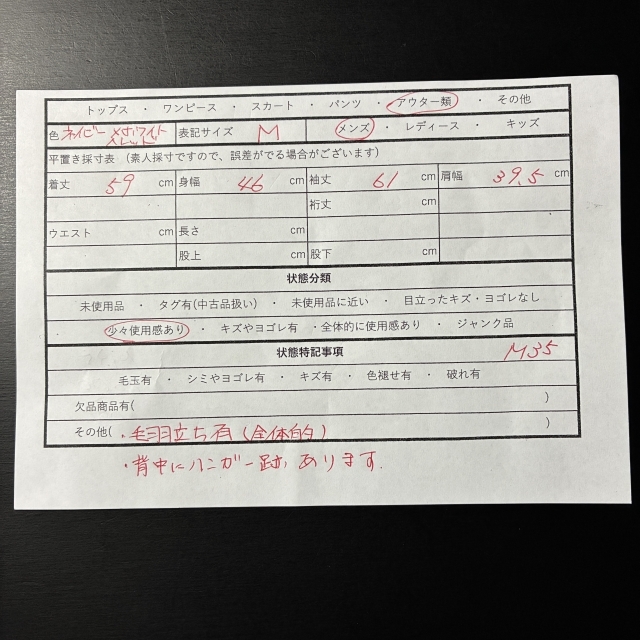 トップス ・ ワンピース ・ スカート ・ パンツ ・ アウター類 ・ その他
色 ネイビー ×ホワイト ×レッド 表記サイズ M メンズ ・ レディース ・ キッズ
平置き採寸表 (素人採寸ですので、誤差がでる場合がございます)
着丈 59 cm 身幅 46 cm 袖丈 61 cm 肩幅 39.5 cm
裄丈 cm
ウエスト cm 長さ cm
股上 cm 股下 cm
状態分類
未使用品 ・ タグ有(中古品扱い) ・ 未使用品に近い ・ 目立ったキズ・ヨゴレなし
少々使用感あり ・ キズやヨゴレ有 ・全体的に使用感あり ・ ジャンク品
状態特記事項 M35
毛玉有 ・ シミやヨゴレ有 ・ キズ有 ・ 色褪せ有 ・ 破れ有
欠品商品有( )
その他( ・毛羽立ち有(全体的) )
・背中にハンガー跡あります.